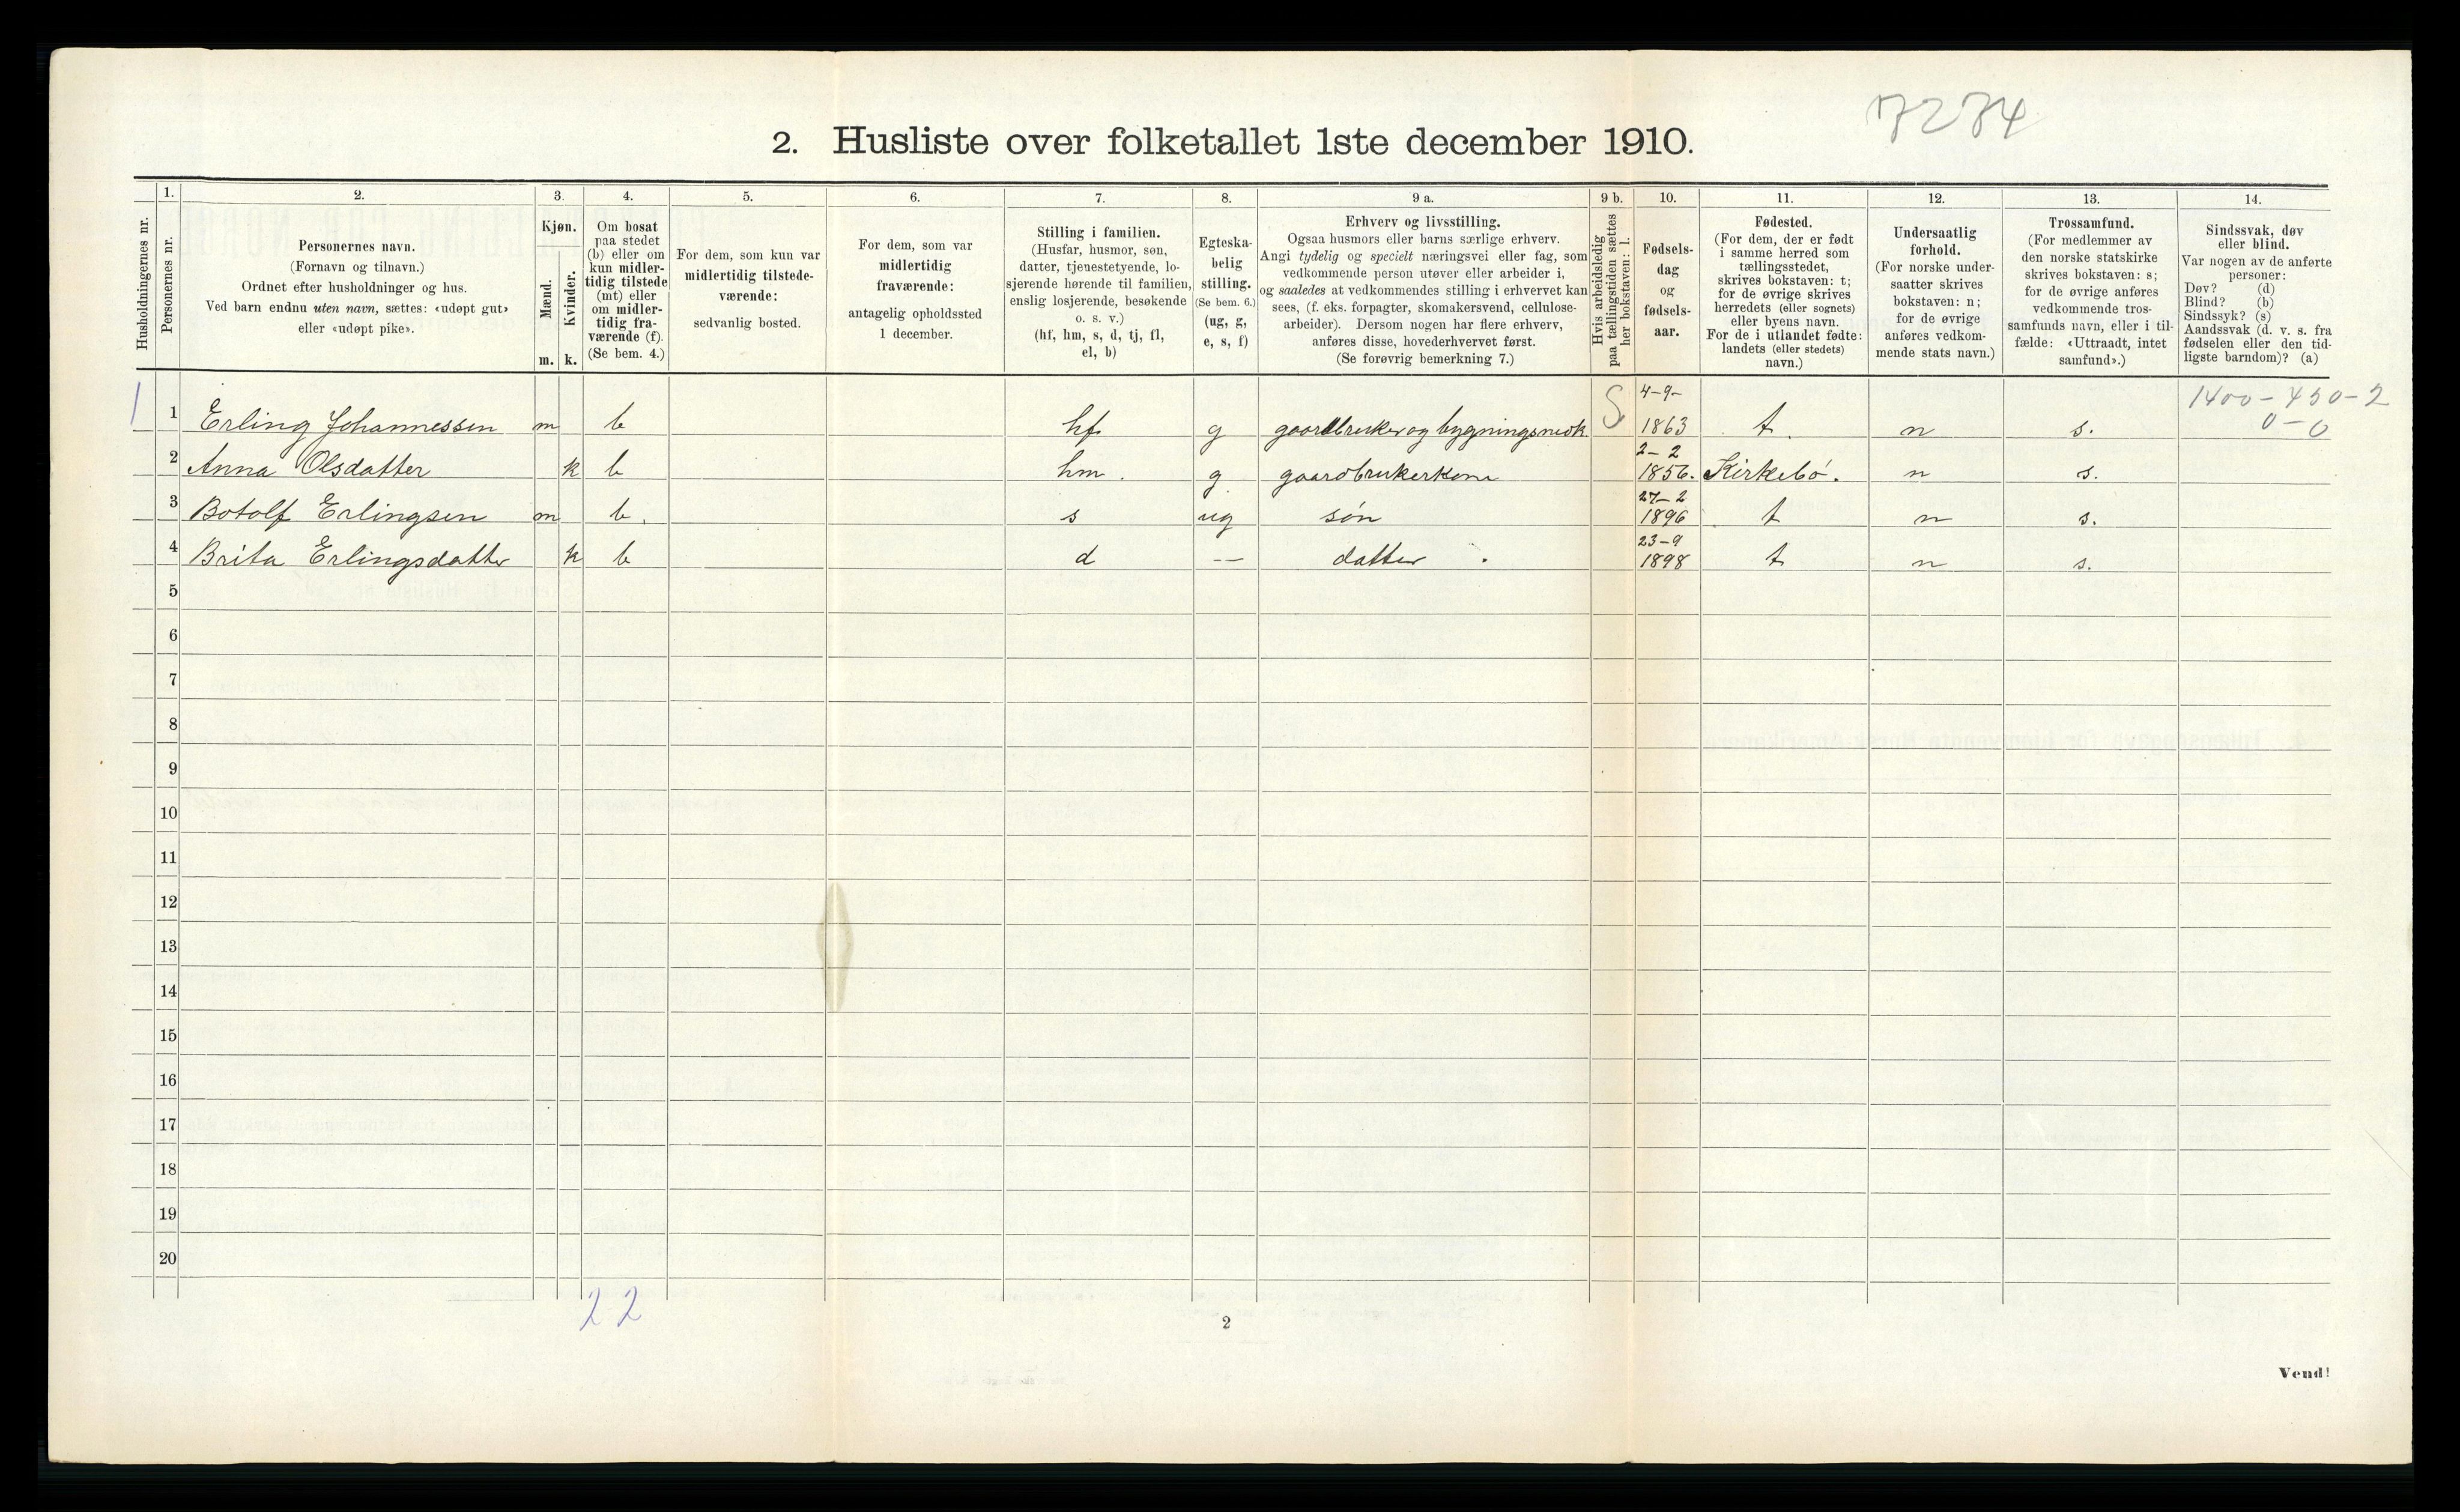 7284
2. Husliste over folketallet 1ste december 1910.
1. 2. 3. 4. 5. 6. 7. 8. 9 a. 9 b. 10. 11. 12. 13. 14.
Husholdningernes nr.
Personernes nr.
Personernes navn.
(Fornavn og tilnavn.)
Ordnet efter husholdninger og hus.
Ved barn endnu uten navn, sættes: «udøpt gut»
eller «udøpt pike».
Kjøn.
Mænd.
Kvinder.
m. k.
Om bosat
paa stedet
(b) eller om
kun midler-
tidig tilstede
(mt) eller
om midler-
tidig fra-
værende (f).
(Se bem. 4.)
For dem, som kun var
midlertidig tilstede-
værende:
sedvanlig bosted.
For dem, som var
midlertidig
fraværende:
antagelig opholdssted
1 december.
Stilling i familien.
(Husfar, husmor, søn,
datter, tjenestetyende, lo-
sjerende hørende til familien,
enslig losjerende, besøkende
o. s. v.)
(hf, hm, s, d, tj, fl,
el, b)
Egteska-
belig
stilling.
(Se bem. 6.)
(ug, g,
e, s, f)
Erhverv og livsstilling.
Ogsaa husmors eller barns særlige erhverv.
Angi tydelig og specielt næringsvei eller fag, som
vedkommende person utøver eller arbeider i,
og saaledes at vedkommendes stilling i erhvervet kan
sees, (f. eks. forpagter, skomakersvend, cellulose-
arbeider). Dersom nogen har flere erhverv,
anføres disse, hovederhvervet først.
(Se forøvrig bemerkning 7.)
Hvis arbeidsledig
paa tællingstiden sættes
her bokstaven: l.
Fødsels-
dag
og
fødsels-
aar.
Fødested.
(For dem, der er født
i samme herred som
tællingsstedet,
skrives bokstaven: t;
for de øvrige skrives
herredets (eller sognets)
eller byens navn.
For de i utlandet fødte:
landets (eller stedets)
navn.)
Undersaatlig
forhold.
(For norske under-
saatter skrives
bokstaven: n;
for de øvrige
anføres vedkom-
mende stats navn.)
Trossamfund.
(For medlemmer av
den norske statskirke
skrives bokstaven: s;
for de øvrige anføres
vedkommende tros-
samfunds navn, eller i til-
fælde: «Uttraadt, intet
samfund».)
Sindssvak, døv
eller blind.
Var nogen av de anførte
personer:
Døv? (d)
Blind? (b)
Sindssyk? (s)
Aandssvak (d. v. s. fra
fødselen eller den tid-
ligste barndom)? (a)
1 1 Erling Johannessen m b hf g gaardbruker og bygningsnedk. S 4-9- 1863 t. n s. 1400-450-2
0-0
2 Anna Olsdatter k b hm. g gaardbrukerkone 2-2 1856. Kirkebö. n s.
3 Botolf Erlingsen m b. s ug sön 27-2 1896 t n s.
4 Brita Erlingsdatter k b d -- datter 23-9 1898 t n s.
5
6
7
8
9
10
11
12
13
14
15
16
17
18
19
20
2 2
2
Vend!